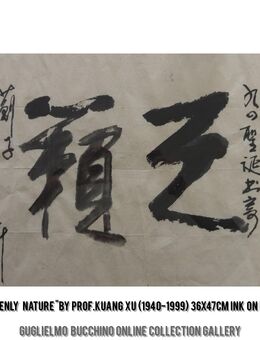 九四聖誕
天籟
ENLY NATURE"BY PROF.KUANG XU (1940-1999) 36X47CM INK ON
GUGLIELMO BUCCHINO ONLINE COLLECTION GALLERY